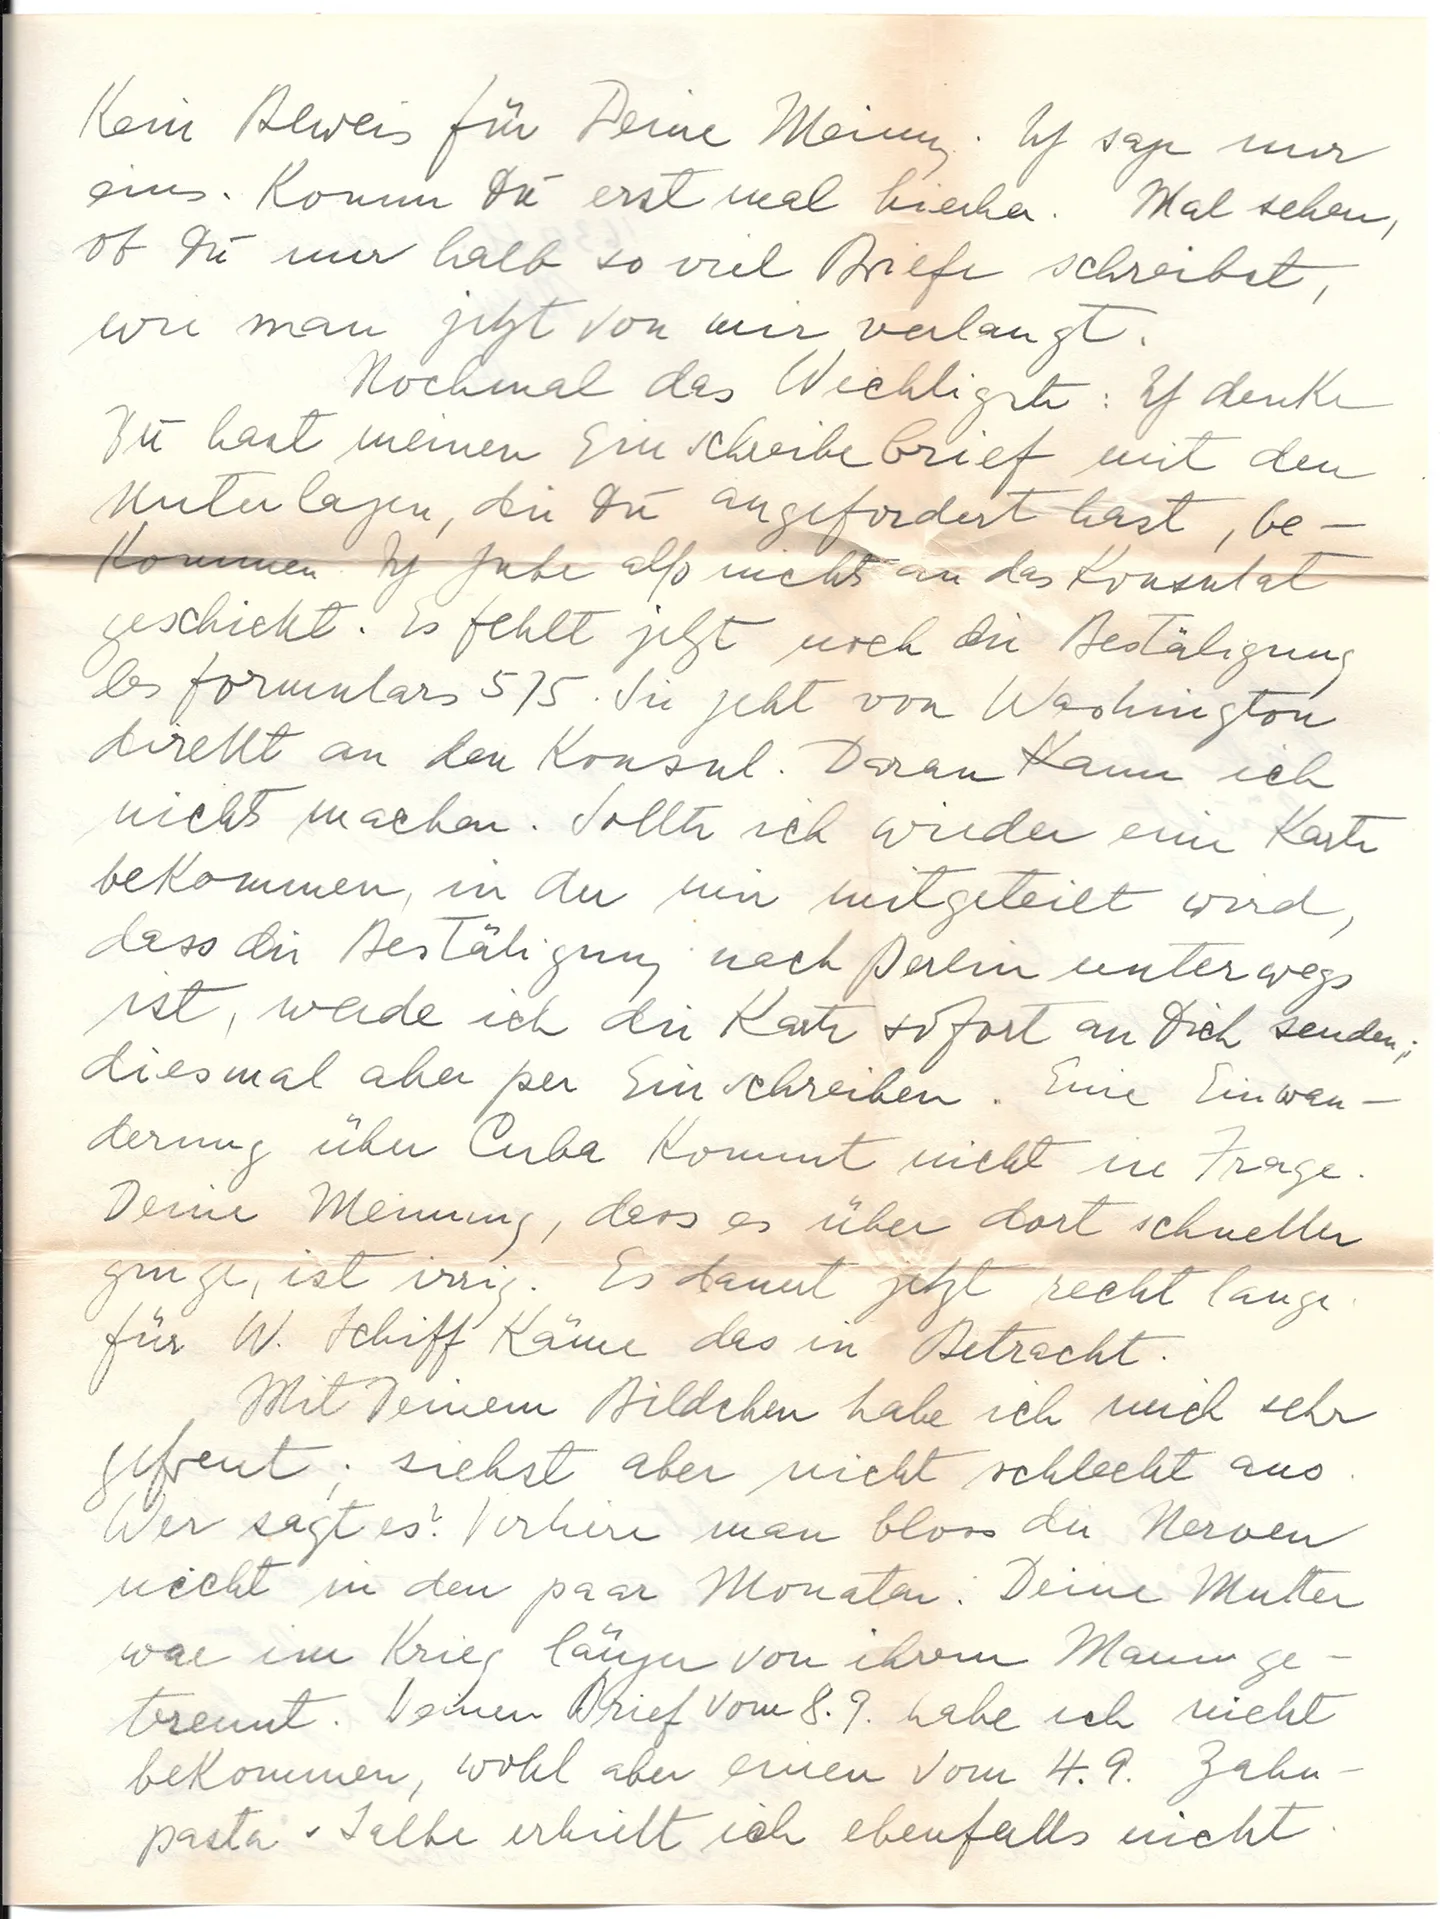 Kein Beweis für Deine Meinung. Ich sage nur
eins. Komm Du erst mal hierher. Mal sehen,
ob Du nur halb so viel Briefe schreibst,
wie man jetzt von mir verlangt.
Nochmal das Wichtigste: Ich denke
Du hast meinen Einschreibebrief mit den
Unterlagen, die Du angefordert hast, be-
kommen. Ich habe also nichts an das Konsulat
geschickt. Es fehlt jetzt noch die Bestätigung
des Formulars 575. Sie geht von Washington
direkt an den Konsul. Daran kann ich
nichts machen. Sollte ich wieder eine Karte
bekommen, in der mir mitgeteilt wird,
dass die Bestätigung nach Berlin unterwegs
ist, werde ich die Karte sofort an Dich senden;
diesmal aber per Einschreiben. Eine Einwan-
derung über Cuba kommt nicht in Frage.
Deine Meinung, dass es über dort schneller
ginge, ist irrig. Es dauert jetzt recht lange.
für W. Schiff käme das in Betracht.
Mit Deinem Bildchen habe ich mich sehr
gefreut; siehst aber nicht schlecht aus.
Wer sagt es? Verliere man bloss die Nerven
nicht in den paar Monaten. Deine Mutter
war im Krieg länger von ihrem Mann ge-
trennt. Deinen Brief vom 8.9. habe ich nicht
bekommen, wohl aber einen vom 4.9. Zahn-
pasta + Salbe erhielt ich ebenfalls nicht.